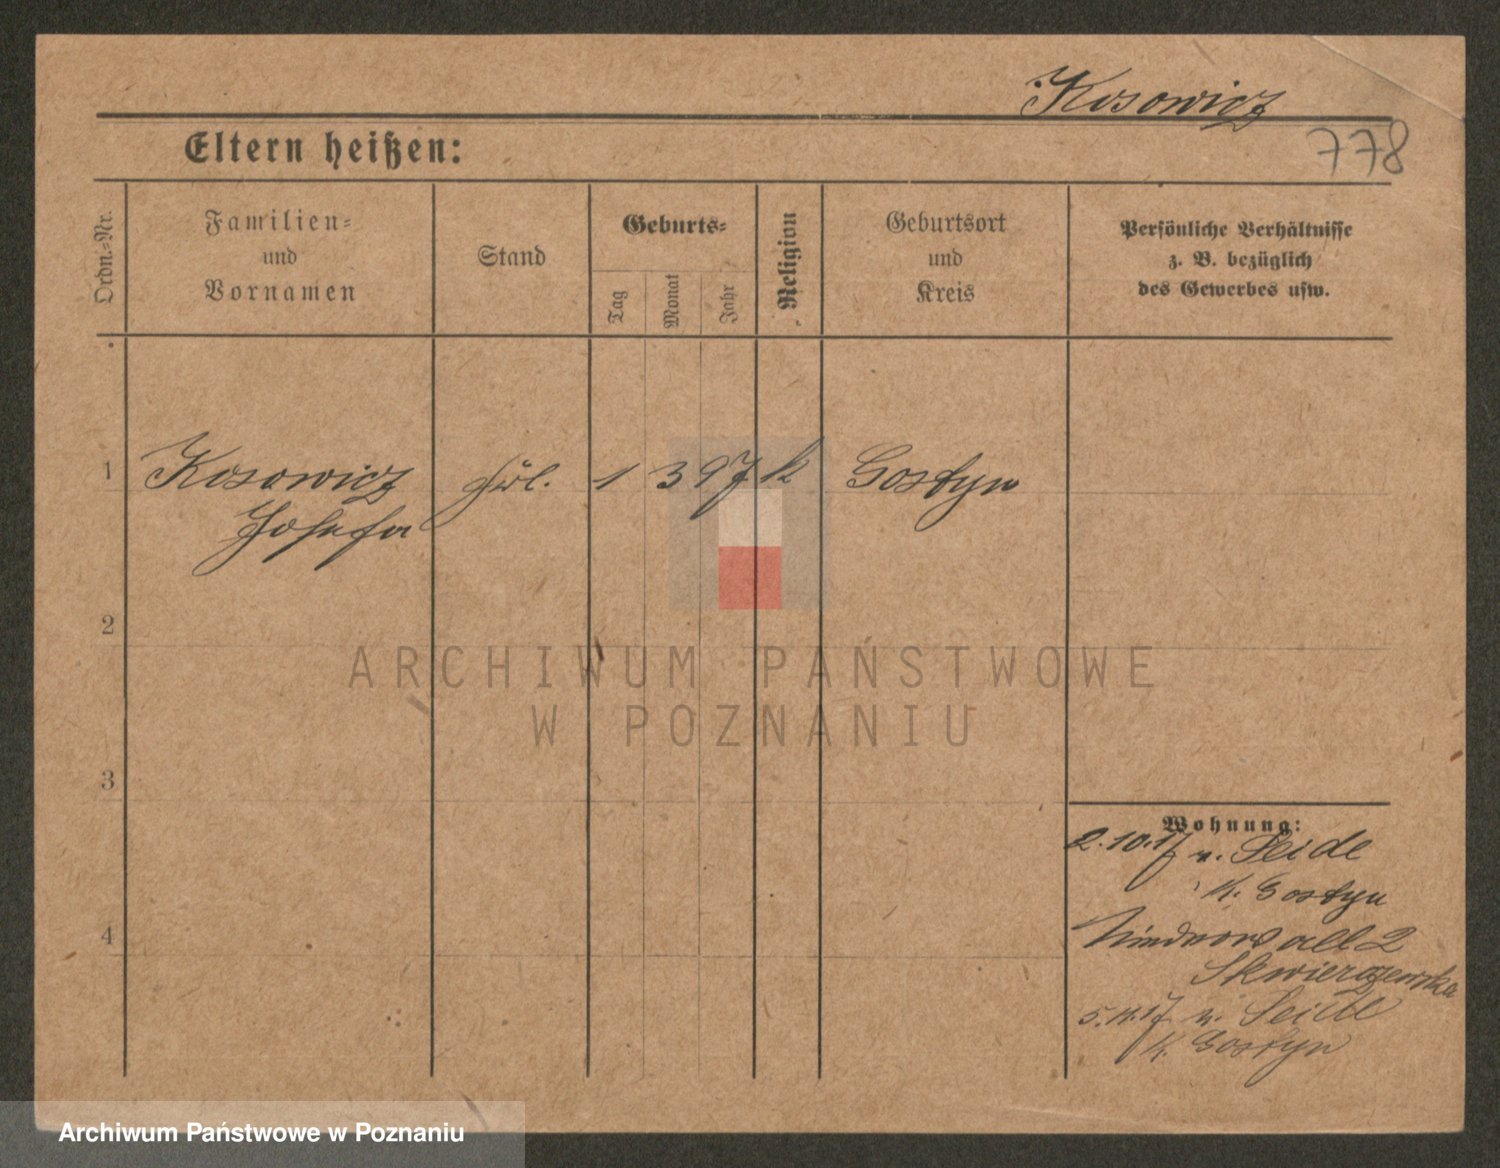 Kosowicz
778
Eltern heißen:
Ordn.-Nr.
Familien-
und
Vornamen
Stand
Geburts-
Tag
Monat
Jahr
Religion
Geburtsort
und
Kreis
Persönliche Verhältnisse
z. B. bezüglich
des Gewerbes usw.
1 Kosowicz 1 3 97 k Gostyn
Josefa
2
3
4
ARCHIWUM PAŃSTWOWE
W POZNANIU
Wohnung:
2.10.17 n. Seide
K. Gostyn
all 2
Skwierczewska
5.11.17 n. Seide
K. Gostyn
Archiwum Państwowe w Poznaniu